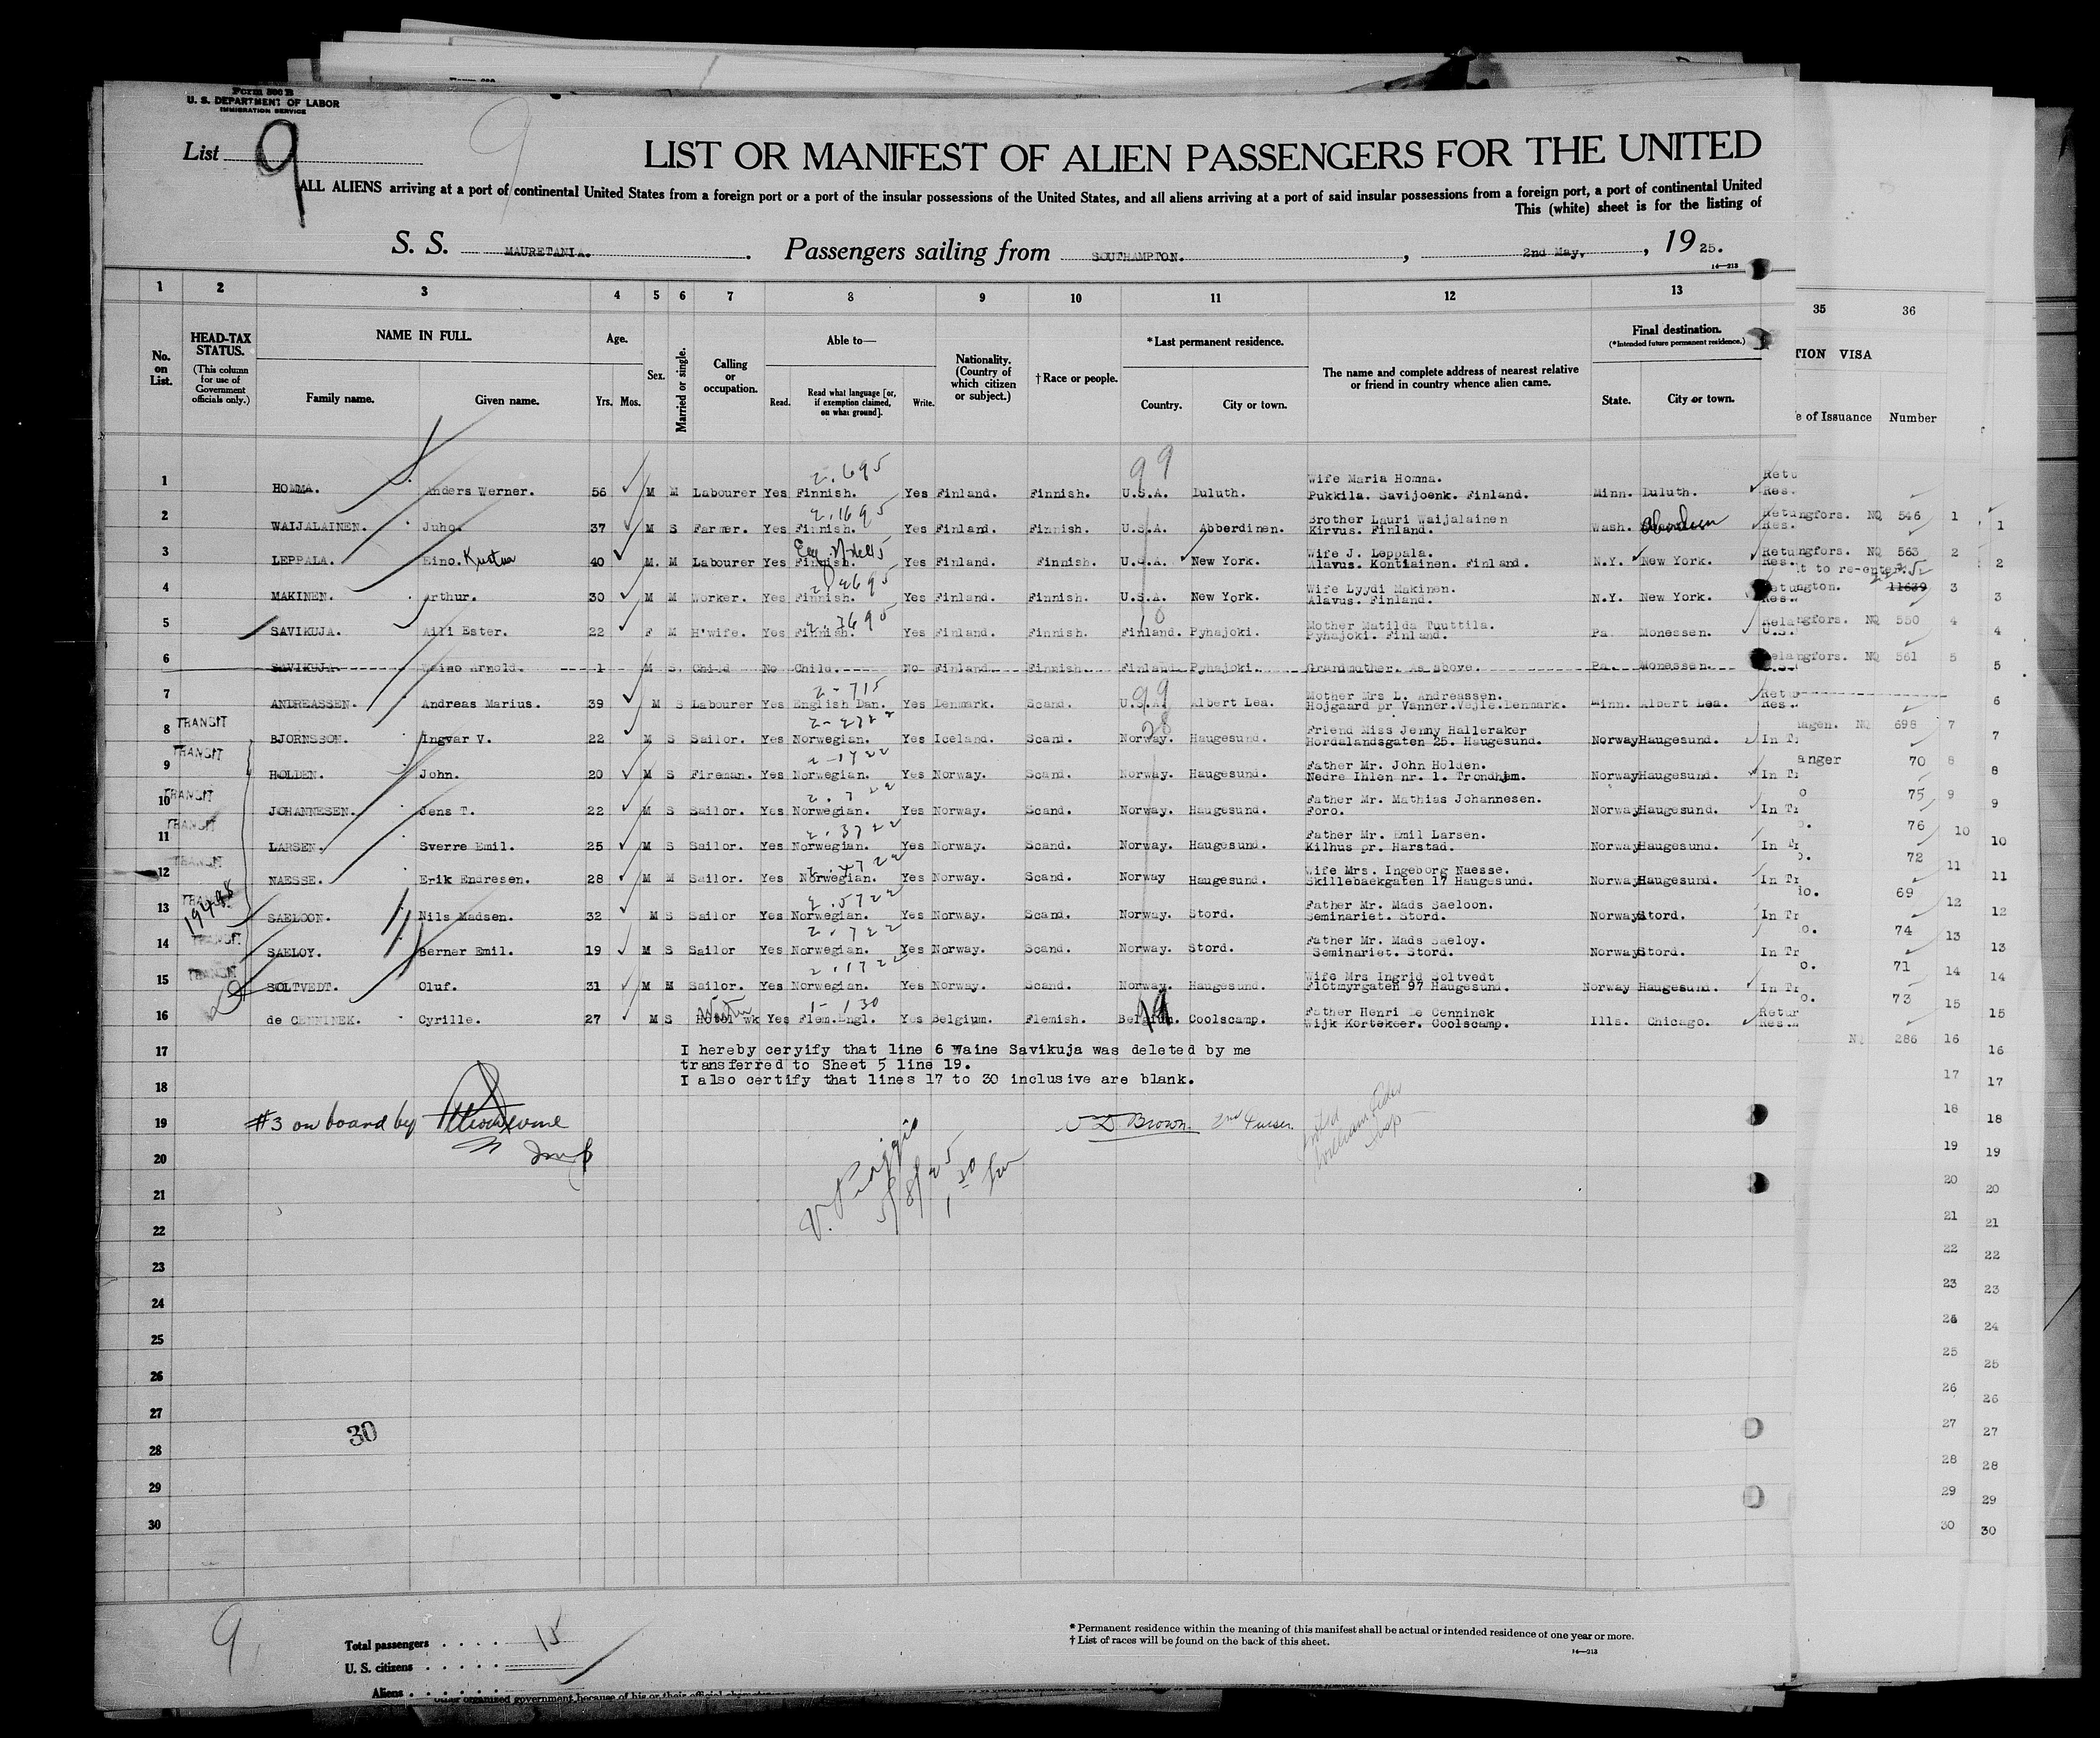 Form 500 B
U. S. DEPARTMENT OF LABOR
IMMIGRATION SERVICE
List 9
9
LIST OR MANIFEST OF ALIEN PASSENGERS FOR THE UNITED
ALL ALIENS arriving at a port of continental United States from a foreign port or a port of the insular possessions of the United States, and all aliens arriving at a port of said insular possessions from a foreign port, a port of continental United
This (white) sheet is for the listing of
S. S. MAURETANIA. Passengers sailing from SOUTHAMPTON. , 2nd May, , 19 25.
14—213
1 2 3 4 5 6 7 8 9 10 11 12 13 35 36
No. on List.
HEAD-TAX STATUS.
(This column for use of Government officials only.)
NAME IN FULL.
Family name. Given name.
Age.
Yrs. Mos.
Sex.
Married or single.
Calling or occupation.
Able to—
Read. Read what language [or, if exemption claimed, on what ground]. Write.
Nationality. (Country of which citizen or subject.)
† Race or people.
* Last permanent residence.
Country. City or town.
The name and complete address of nearest relative or friend in country whence alien came.
Final destination.
(* Intended future permanent residence.)
State. City or town.
TION VISA
e of Issuance Number
1 HOMMA. Anders Werner. 56 M M Labourer Yes Finnish. Yes Finland. Finnish. U.S.A. Duluth. Wife Maria Homma. Pukkila. Savijoenk. Finland. Minn. Duluth. Retu Res.
2 WAIJALAINEN. Juho. 37 M S Farmer. Yes Finnish. Yes Finland. Finnish. U.S.A. Abberdinen. Brother Lauri Waijalainen Kirvus. Finland. Wash. Aberdeen Retu Res. ngfors. NQ 546 1
3 LEPPALA. Eino. Kustaa 40 M. M Labourer Yes Finnish. Yes Finland. Finnish. U.S.A. New York. Wife J. Leppala. Alavus. Kontiainen. Finland. N.Y. New York. Retu Res. ngfors. NQ 563 2
t to re-enter.
4 MAKINEN. Arthur. 30 M M Worker. Yes Finnish. Yes Finland. Finnish. U.S.A. New York. Wife Lyydi Makinen. Alavus. Finland. N.Y. New York. Retu Res. ngton. 11639 3
5 SAVIKUJA. Aili Ester. 22 F M H'wife. Yes Finnish. Yes Finland. Finnish. Finland. Pyhajoki. Mother Matilda Tuuttila. Pyhajoki. Finland. Pa. Monessen. Rela U.S. ngfors. NQ 550 4
6 SAVIKUJA. Waino Arnold. 1 M S. Child No Child. No Finland. Finnish Finland Pyhajoki. Grandmother. As above. Pa. Monessen. Rela ngfors. NQ 561 5
7 ANDREASSEN. Andreas Marius. 39 M S Labourer Yes English Dan. Yes Denmark. Scand. U.S.A. Albert Lea. Mother Mrs L. Andreassen. Hojgaard pr Vanner.Vejle.Denmark. Minn. Albert Lea. Retu Res.
8 TRANSIT BJORNSSON. Ingvar V. 22 M S Sailor. Yes Norwegian. Yes Iceland. Scand. Norway. Haugesund. Friend Miss Jenny Halleraker Hordalandsgaten 25. Haugesund. Norway Haugesund. In Tr hagen. NQ 698 7
9 TRANSIT HOLDEN. John. 20 M S Fireman. Yes Norwegian. Yes Norway. Scand. Norway. Haugesund. Father Mr. John Holden. Nedre Ihlen nr. 1. Trondhjm. Norway Haugesund. In Tr anger 70 8
10 TRANSIT JOHANNESEN. Jens T. 22 M S Sailor. Yes Norwegian. Yes Norway. Scand. Norway. Haugesund. Father Mr. Mathias Johannesen. Foro. Norway Haugesund. In Tr o 75 9
11 TRANSIT LARSEN. Sverre Emil. 25 M S Sailor. Yes Norwegian. Yes Norway. Scand. Norway. Haugesund. Father Mr. Emil Larsen. Kilhus pr. Harstad. Norway Haugesund. In Tr o. 76 10
12 TRANSIT NAESSE. Erik Endresen. 28 M M Sailor. Yes Norwegian. Yes Norway. Scand. Norway Haugesund. Wife Mrs. Ingeborg Naesse. Skillebaekgaten 17 Haugesund. Norway Haugesund. In Tr o. 72 11
13 TRANSIT SAELOON. Nils Madsen. 32 M S Sailor Yes Norwegian. Yes Norway. Scand. Norway. Stord. Father Mr. Mads Saeloon. Seminariet. Stord. Norway Stord. In Tr io. 69 12
14 TRANSIT SAELOY. Berner Emil. 19 M S Sailor Yes Norwegian. Yes Norway. Scand. Norway. Stord. Father Mr. Mads Saeloy. Seminariet. Stord. Norway Stord. In Tr o. 74 13
15 TRANSIT SOLTVEDT. Oluf. 31 M M Sailor. Yes Norwegian. Yes Norway. Scand. Norway. Haugesund. Wife Mrs Ingrid Soltvedt Flotmyrgaten 97 Haugesund. Norway Haugesund. In Tr o. 71 14
16 de CENNINEK. Cyrille. 27 M S Hotel wk Yes Flem.Engl. Yes Belgium. Flemish. Belgium. Coolscamp. Father Henri De Cenninek Wijk Kortekeer. Coolscamp. Ills. Chicago. Retur Res. o. 73 15
NQ 286 16
17 I hereby ceryify that line 6 Waine Savikuja was deleted by me
transferred to Sheet 5 line 19.
18 I also certify that lines 17 to 30 inclusive are blank.
19 #3 on board by
Brown. 2nd Purser.
20
21
22
23
24
25
26
27
30
28
29
30
9
Total passengers . . . . 15
U. S. citizens . . . . .
Aliens . . . . . .
* Permanent residence within the meaning of this manifest shall be actual or intended residence of one year or more.
† List of races will be found on the back of this sheet.
14—213